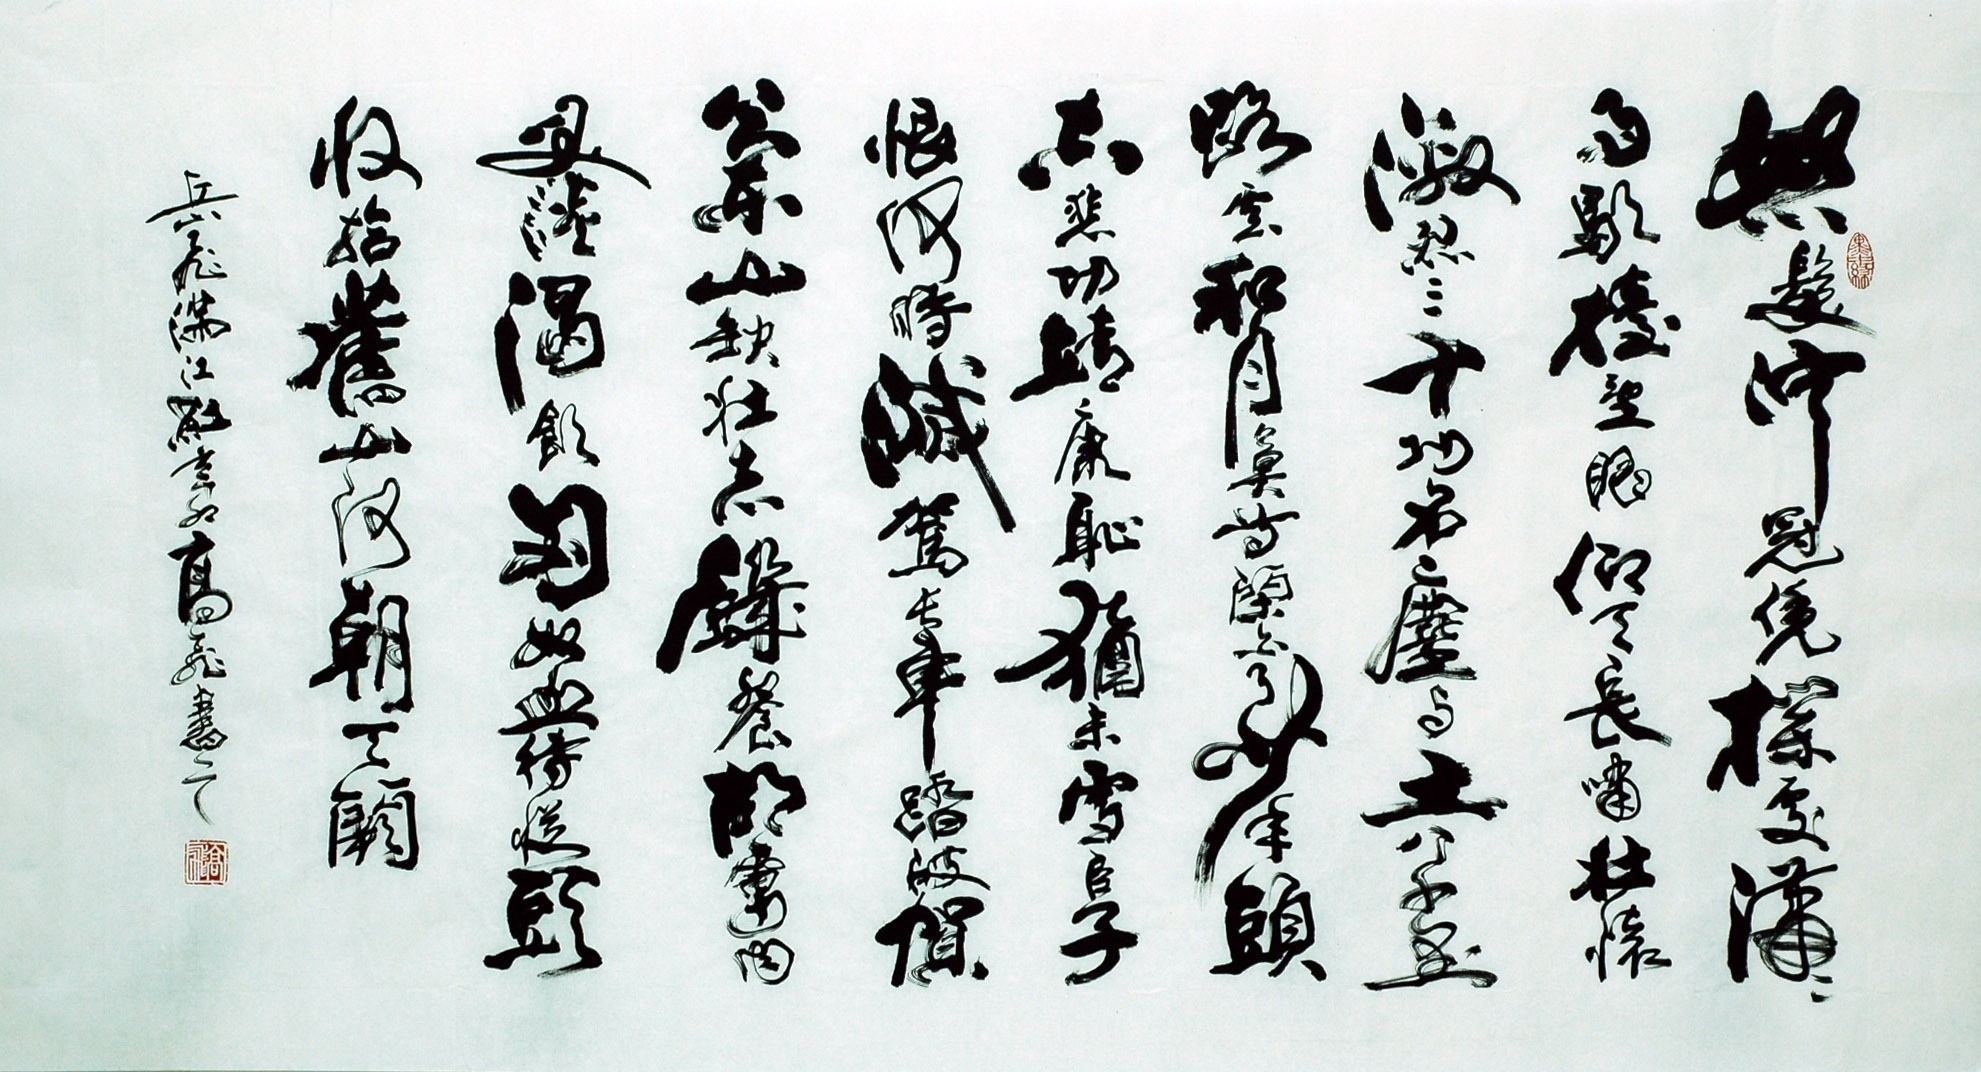 怒髮沖冠凭欄處潇潇
雨歇擡望眼仰天長嘯壯懷
激烈三十功名塵与土八千里
路雲和月莫等閑白了少年頭
空悲切靖康恥猶未雪臣子
恨何時滅駕長車踏破賀
蘭山缺壯志饑餐胡虜肉
笑談渴飲匈奴血待從頭
收拾舊山河朝天闕
岳飛滿江紅高飛書